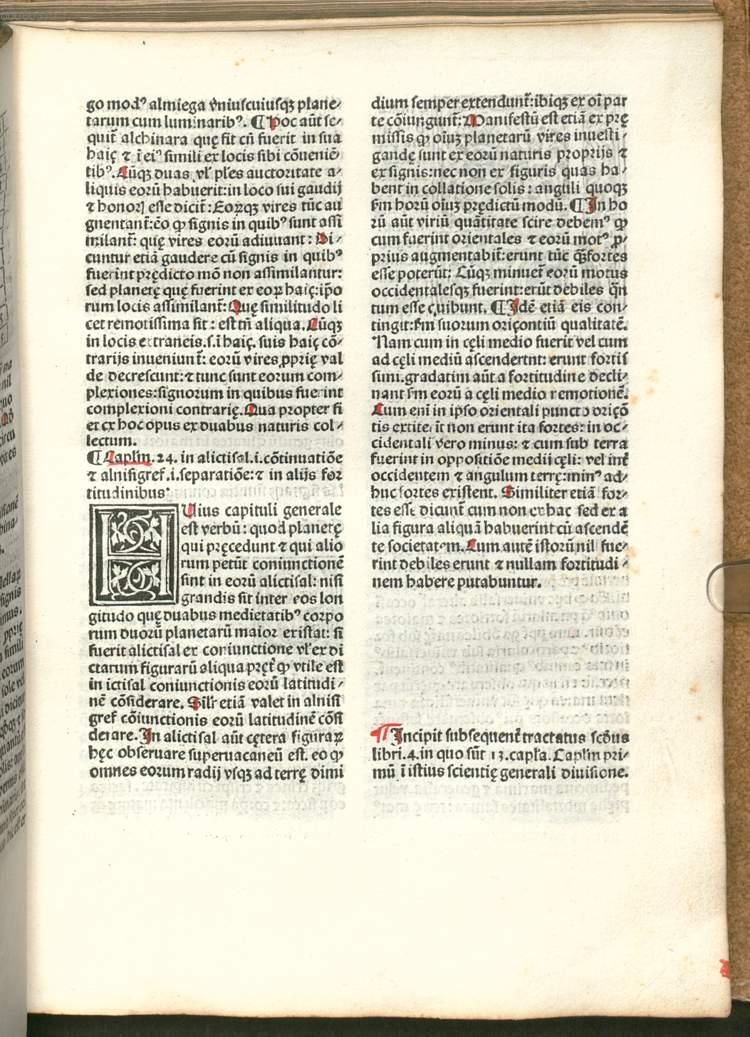 go modꝰ almiega vniuscuiusqꝫ plane/
tarum cum luminaribꝰ. ¶ Hoc aūt se/
quit̄ alchinara que̜ fit cū fuerit in sua
haic̜ ⁊ ī eiꝰ simili ex locis sibi cōueniē
tibꝰ. Cūqꝫ duas vl̓ pl̓es auctoritate a/
liquis eorū habuerit: in loco sui gaudij
⁊ honorꝭ esse dicit̄: Eorꝫqꝫ vires tūc au
gnentant̄: eo ꝙ signis in quibꝰ sunt assi
milant̄: que̜ vires eorū adiuuant: Di/
cuntur etiā gaudere cū signis in quibꝰ
fuerint pre̜dicto mō non assimilantur:
sed planete̜ que̜ fuerint ex eoꝝ haic̜: ip̄o
rum locis assimilant̄: Que̜ similitudo li
cet remotissima sit: est tn̄ aliqua. Cūqꝫ
in locis extraneis .s. ī haic̜. suis haic̜ cō-
trarijs inueniunt̄: eorū vires ꝓprie̜ val
de decrescunt: ⁊ tunc sunt eorum com/
plexiones: signorum in quibus fuerint
complexioni contrarie̜. Qua propter fi
et ex hoc opus ex duabus naturis col/
lectum.
¶ Caplm̄. 24. in alictisal .i. cōtinuatiōe
⁊ alnisigref .i. separatiōe: ⁊ in alijs for
titudinibus.
HUius capituli generale
est verbū: quod planete̜
qui pre̜cedunt ⁊ qui alio
rum petūt coniunctionē
sint in eorū alictisal: nisi
grandis sit inter eos lon
gitudo que̜ duabus medietatibꝰ corpo
rum duorū planetarū maior existat: si
fuerit alictisal ex coniunctione vl̓ ex di
ctarum figurarū aliqua pre̜t̓ ꝙ vtile est
in ictisal coniunctionis eorū latitudi/
nē cōsiderare. Silr̓ etiā valet in alnisi
gref cōiunctionis eorū latitudinē cōsi
derare. In alictisal aūt ce̜tera figuraꝝ
he̜c obseruare superuacaneū est. eo ꝙ
omnes eorum radij vsqꝫ ad terre̜ dimi
dium semper extendunt̄: ibiqꝫ ex oī par
te cōiungunt̄: Manifestū est etiā ex pre̜
missis ꝙ oīuꝫ planetarū vires inuesti/
gande̜ sunt ex eorū naturis proprijs ⁊
ex signis: nec non ex figuris quas ha/
bent in collatione solis: anguli quoqꝫ
ẜm horū oīuꝫ pre̜dictū modū. ¶ In ho
rū aūt viriū quātitate scire debemꝰ ꝙ
cum fuerint orientales ⁊ eorū motꝰ ꝓ/
prius augmentabit̄: erunt tūc ꝙ̄ fortes
esse poterūt: Cūqꝫ minuet̄ eorū motus
occidentalesqꝫ fuerint: erūt debiles qn̄
tum esse q̓uibunt. ¶ Idē etiā eis con/
tingit: ẜm suorum oriçontiū qualitatē.
Nam cum in ce̜li medio fuerit vel cum
ad ce̜li mediū ascenderint: erunt fortis
simi. gradatim aūt a fortitudine decli/
nant ẜm eorū a ce̜li medio remotionē.
Cum eni̅ in ipso orientali puncto oriçō
tis extiterīt non erunt ita fortes: in oc/
cidentali vero minus: ⁊ cum sub terra
fuerint in oppositiōe medij ce̜li: vel int̓
occidentem ⁊ angulum terre̜: minꝰ ad/
huc fortes existent. Similiter etiā for/
tes esse dicunt̄ cum non ex hac sed ex a
lia figura aliquā habuerint cū ascendē
te societatem. Cum autē istorū nil fue/
rint debiles erunt ⁊ nullam fortitudi/
nem habere putabuntur.
¶ Incipit subsequent̄ tractatus scd̄us
libri .4. in quo sūt 13. capl̓a. Caplm̄ pri/
mū ī istius scientie̜ generali diuisione.